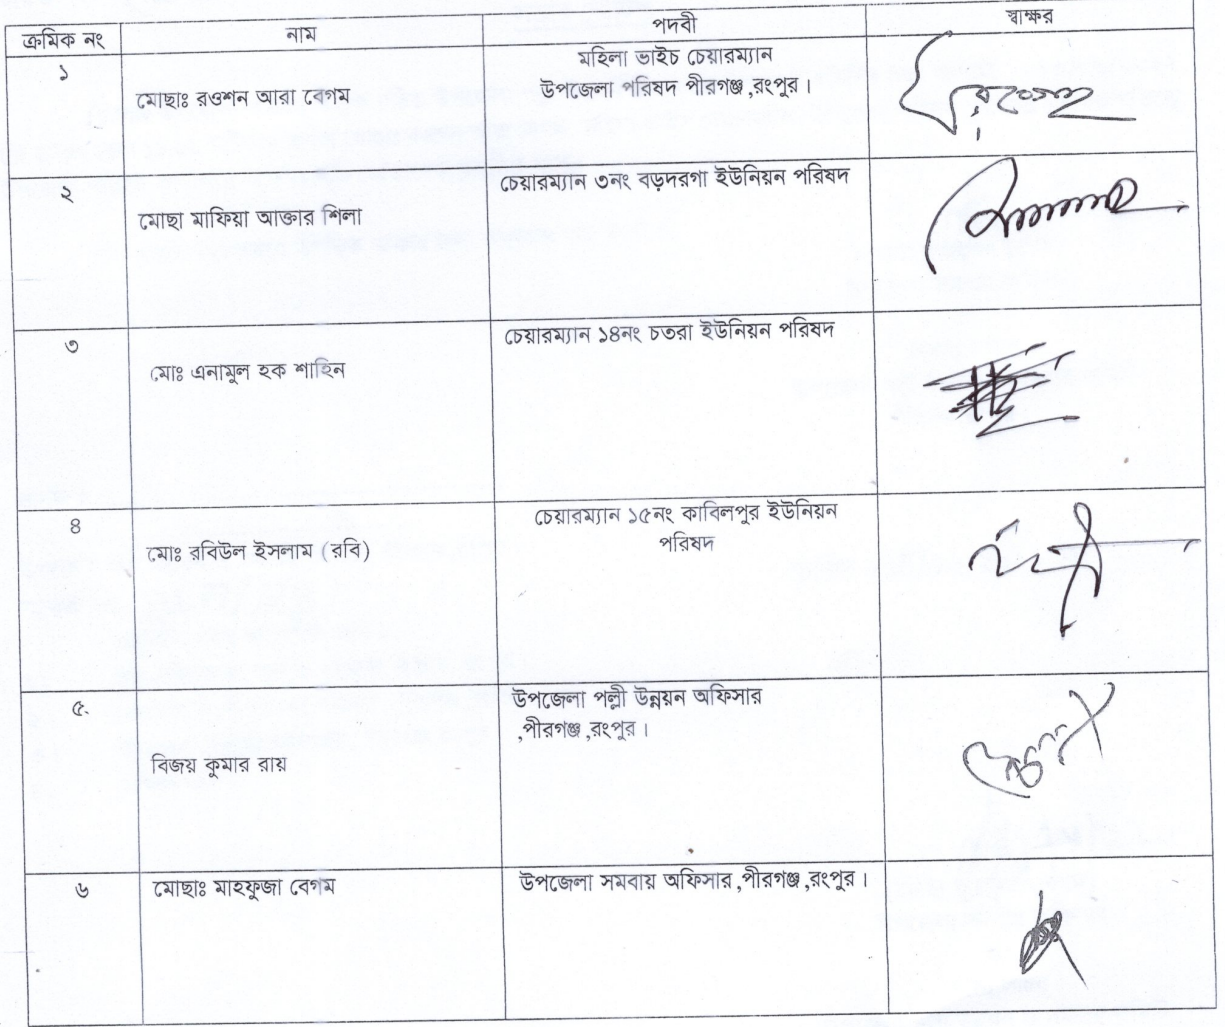 ক্রমিক নং নাম পদবী স্বাক্ষর
১ মোছাঃ রওশন আরা বেগম মহিলা ভাইচ চেয়ারম্যান
উপজেলা পরিষদ পীরগঞ্জ,রংপুর।
২ মোছা মাফিয়া আক্তার শিলা চেয়ারম্যান ৩নং বড়দরগা ইউনিয়ন পরিষদ
৩ মোঃ এনামুল হক শাহিন চেয়ারম্যান ১৪নং চতরা ইউনিয়ন পরিষদ
৪ মোঃ রবিউল ইসলাম (রবি) চেয়ারম্যান ১৫নং কাবিলপুর ইউনিয়ন
পরিষদ
৫ বিজয় কুমার রায় উপজেলা পল্লী উন্নয়ন অফিসার
,পীরগঞ্জ,রংপুর।
৬ মোছাঃ মাহফুজা বেগম উপজেলা সমবায় অফিসার,পীরগঞ্জ,রংপুর।